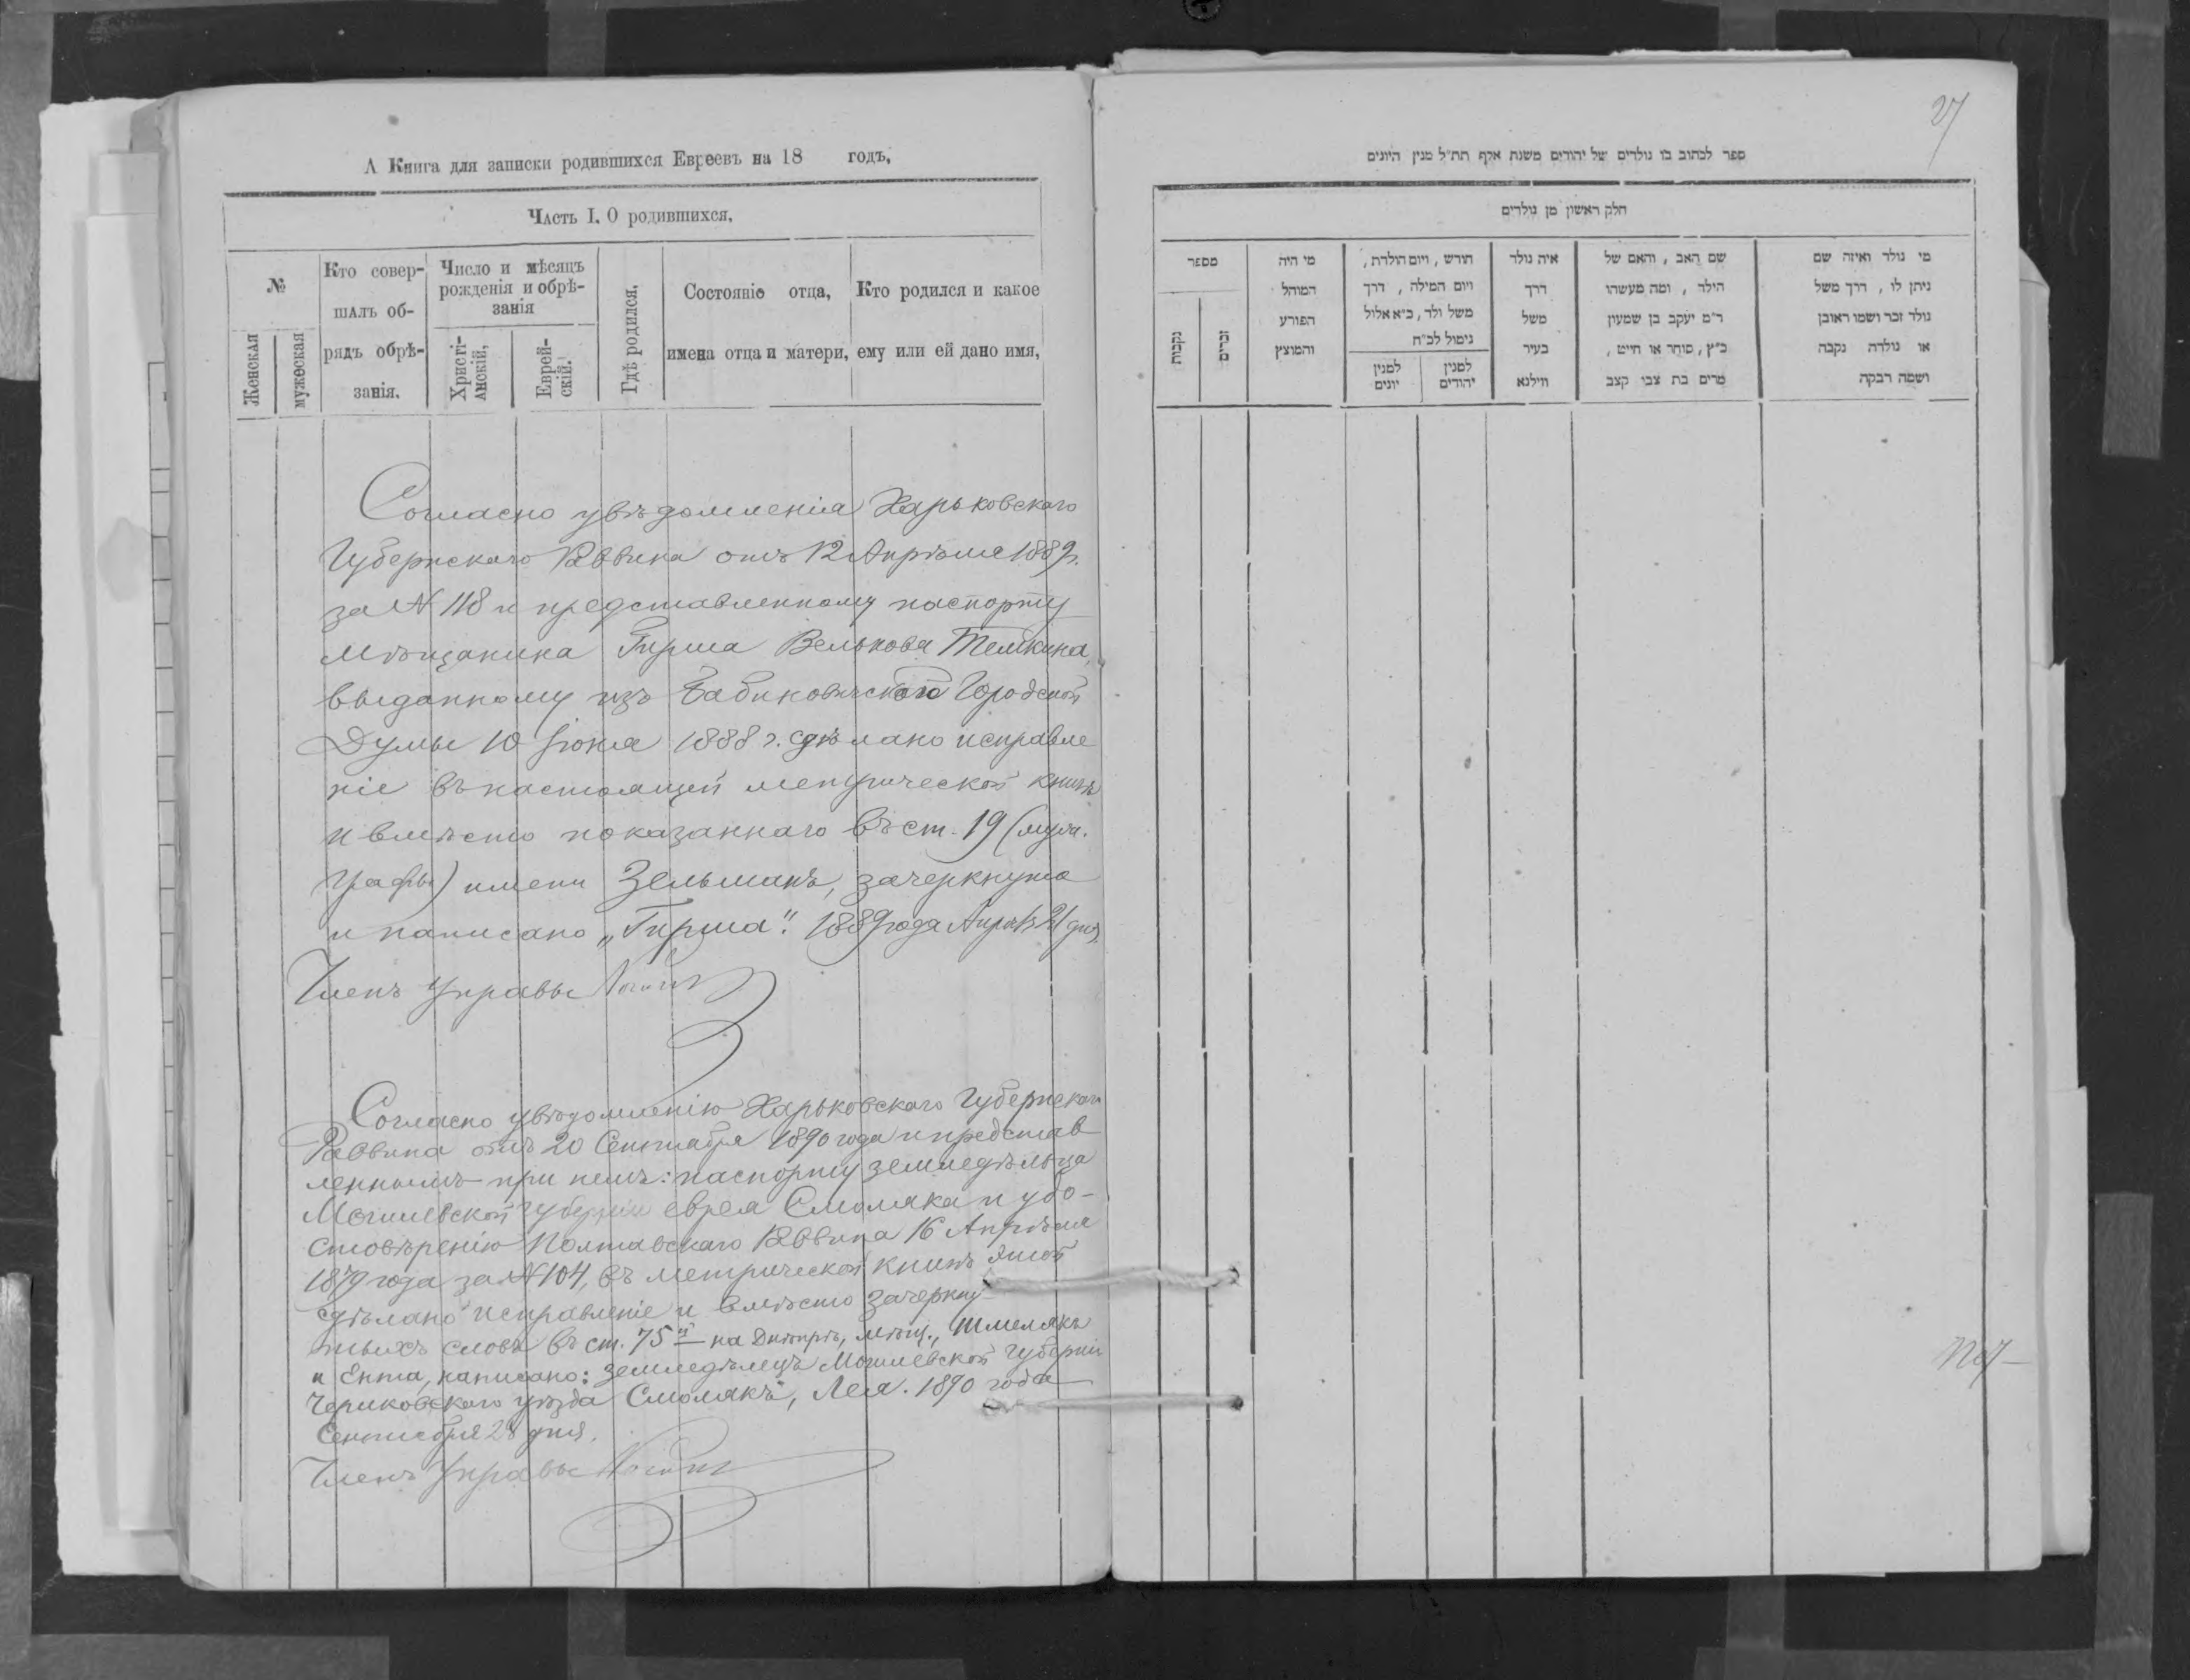 А Книга для записки родившихся Евреевъ на 18 годъ,
Часть I. О родившихся.
№
Женская
мужеская
Кто совер-
шалъ об-
рядъ обрѣ-
занія.
Число и мѣсяцъ
рожденія и обрѣ-
занія
Христі-
анскій,
Еврей-
скій.
Гдѣ родился.
Состояніе отца,
имена отца и матери,
Кто родился и какое
ему или ей дано имя,
Согласно увѣдомленія Харьковскаго
Губернскаго Раввина отъ 12 Апрѣля 1889г.
за № 118 и представленному паспорту
мѣщанина Гирша Велькова Темкина,
выданному изъ Городской
Думы 10 Іюня 1888 г. сдѣлано исправле
ніе въ настоящей метрической книгѣ
и вмѣсто показаннаго въ ст. 19 (муж.
графы) имени Зельманъ, зачеркнуто
и написано „Гирша". 1889 года Апрѣля 21 дня.
Членъ Управы
Согласно увѣдомленію Харьковскаго Губернскаго
Раввина отъ 20 Сентября 1890 года и представ
леннымъ при немъ: паспорту земледѣльца
Могилевской губерніи еврея Смоляка и удо-
стовѣренію Полтавскаго Раввина 16 Апрѣля
1879 года за № 104, въ метрической книгѣ этой
сдѣлано исправленіе и вмѣсто зачеркну-
тыхъ словъ въ ст. 75й на Днѣпрѣ, мѣщ., Шмелякъ
и Ента, написано: земледѣлецъ Могилевской губерніи
Чериковскаго уѣзда Смолякъ, Лея. 1890 года
Сентября 28 дня.
Членъ Управы
27
ספר לכתוב בו נולדים של יהודים משנת אלף תת״ל מנין היונים
חלק ראשון מן נולדים
מספר
נקבות
זכרים
מי היה
המוהל
הפורע
והמוצץ
חודש, ויום הולדת,
ויום המילה, דרך
משל ולד, כ״א אלול
נימול לכ״ח
למנין
יונים
למנין
יהודים
איה נולד
דרך
משל
בעיר
ווילנא
שם האב, והאם של
הילד, ומה מעשהו
ר״מ יעקב בן שמעון
כ״ץ, סוחר או חייט,
מרים בת צבי קצב
מי נולד ואיזה שם
ניתן לו, דרך משל
נולד זכר ושמו ראובן
או נולדה נקבה
ושמה רבקה